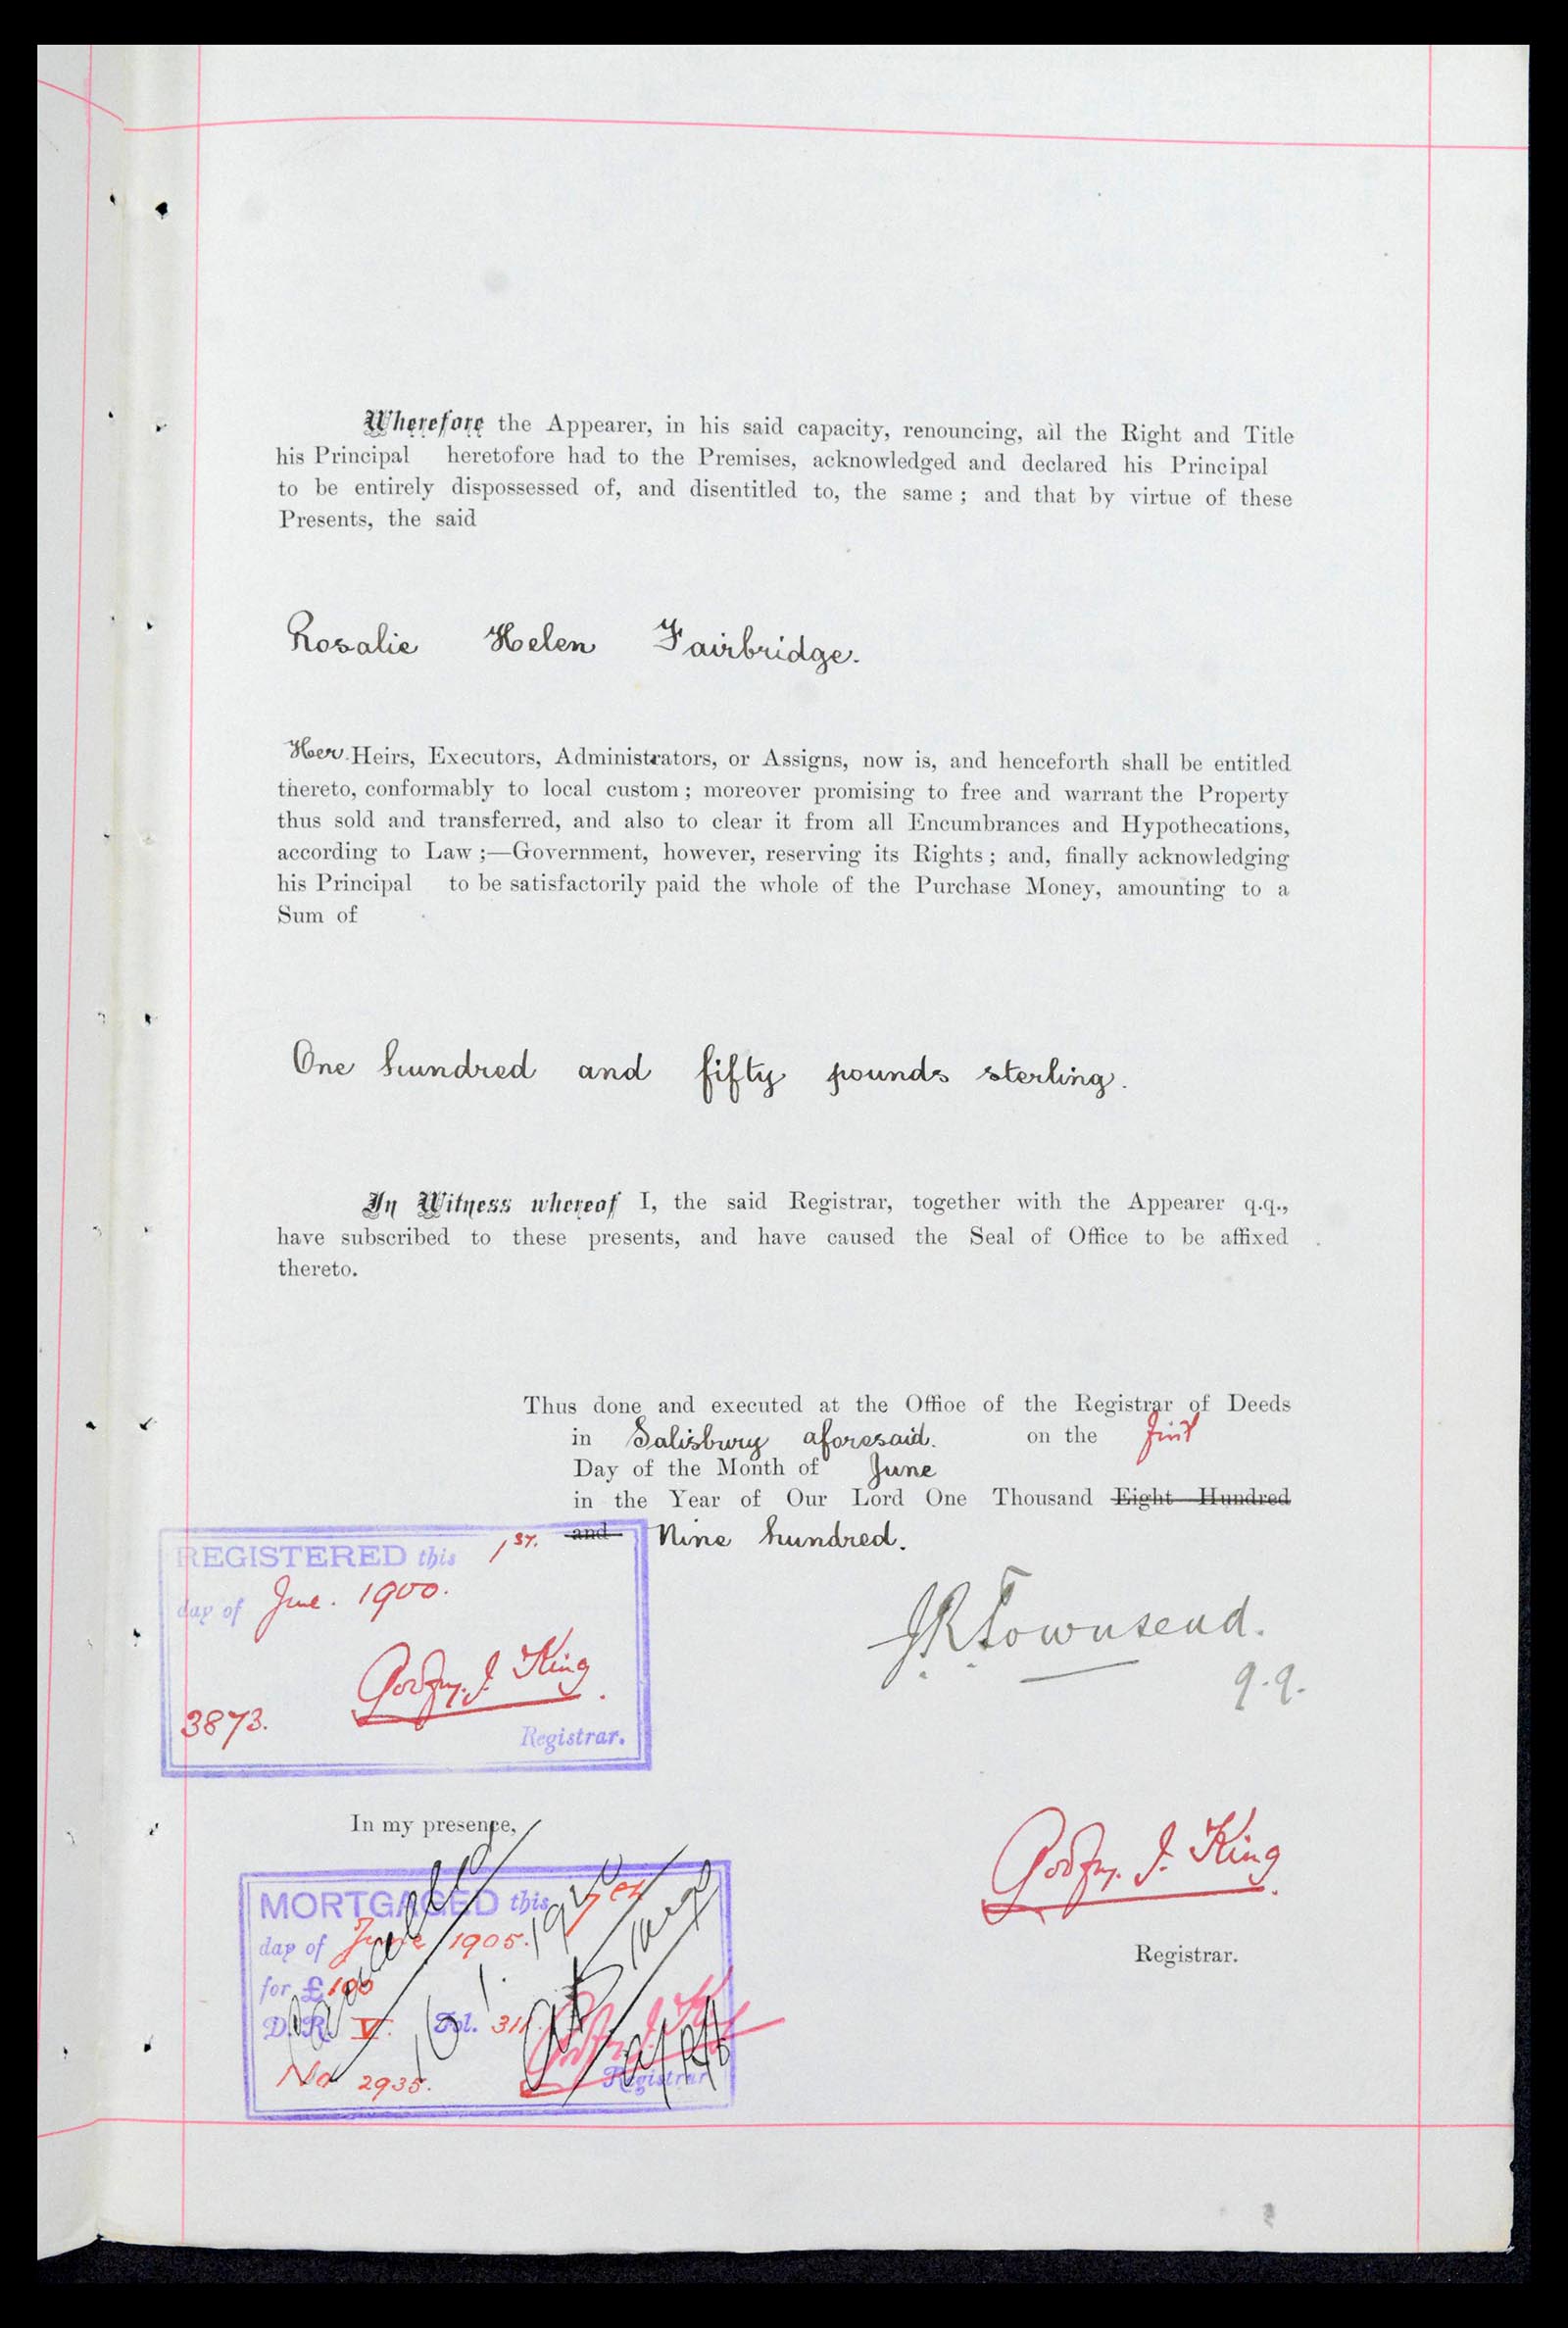 Wherefore the Appearer, in his said capacity, renouncing, all the Right and Title
his Principal heretofore had to the Premises, acknowledged and declared his Principal
to be entirely dispossessed of, and disentitled to, the same; and that by virtue of these
Presents, the said
Rosalie Helen Fairbridge.
Her Heirs, Executors, Administrators, or Assigns, now is, and henceforth shall be entitled
thereto, conformably to local custom; moreover promising to free and warrant the Property
thus sold and transferred, and also to clear it from all Encumbrances and Hypothecations,
according to Law;—Government, however, reserving its Rights; and, finally acknowledging
his Principal to be satisfactorily paid the whole of the Purchase Money, amounting to a
Sum of
One hundred and fifty pounds sterling.
In Witness whereof I, the said Registrar, together with the Appearer q.q.,
have subscribed to these presents, and have caused the Seal of Office to be affixed
thereto.
Thus done and executed at the Office of the Registrar of Deeds
in Salisbury aforesaid. on the first
Day of the Month of June
in the Year of Our Lord One Thousand Eight Hundred
and Nine hundred.
REGISTERED this 1st.
day of June. 1900.
J. King
3873.
Registrar.
JR Townsend.
q.q.
In my presence,
J. King
Registrar.
MORTGAGED this
day of June 1905.
for £100
D.R. V. Fol. 311
No 2935.
Registrar